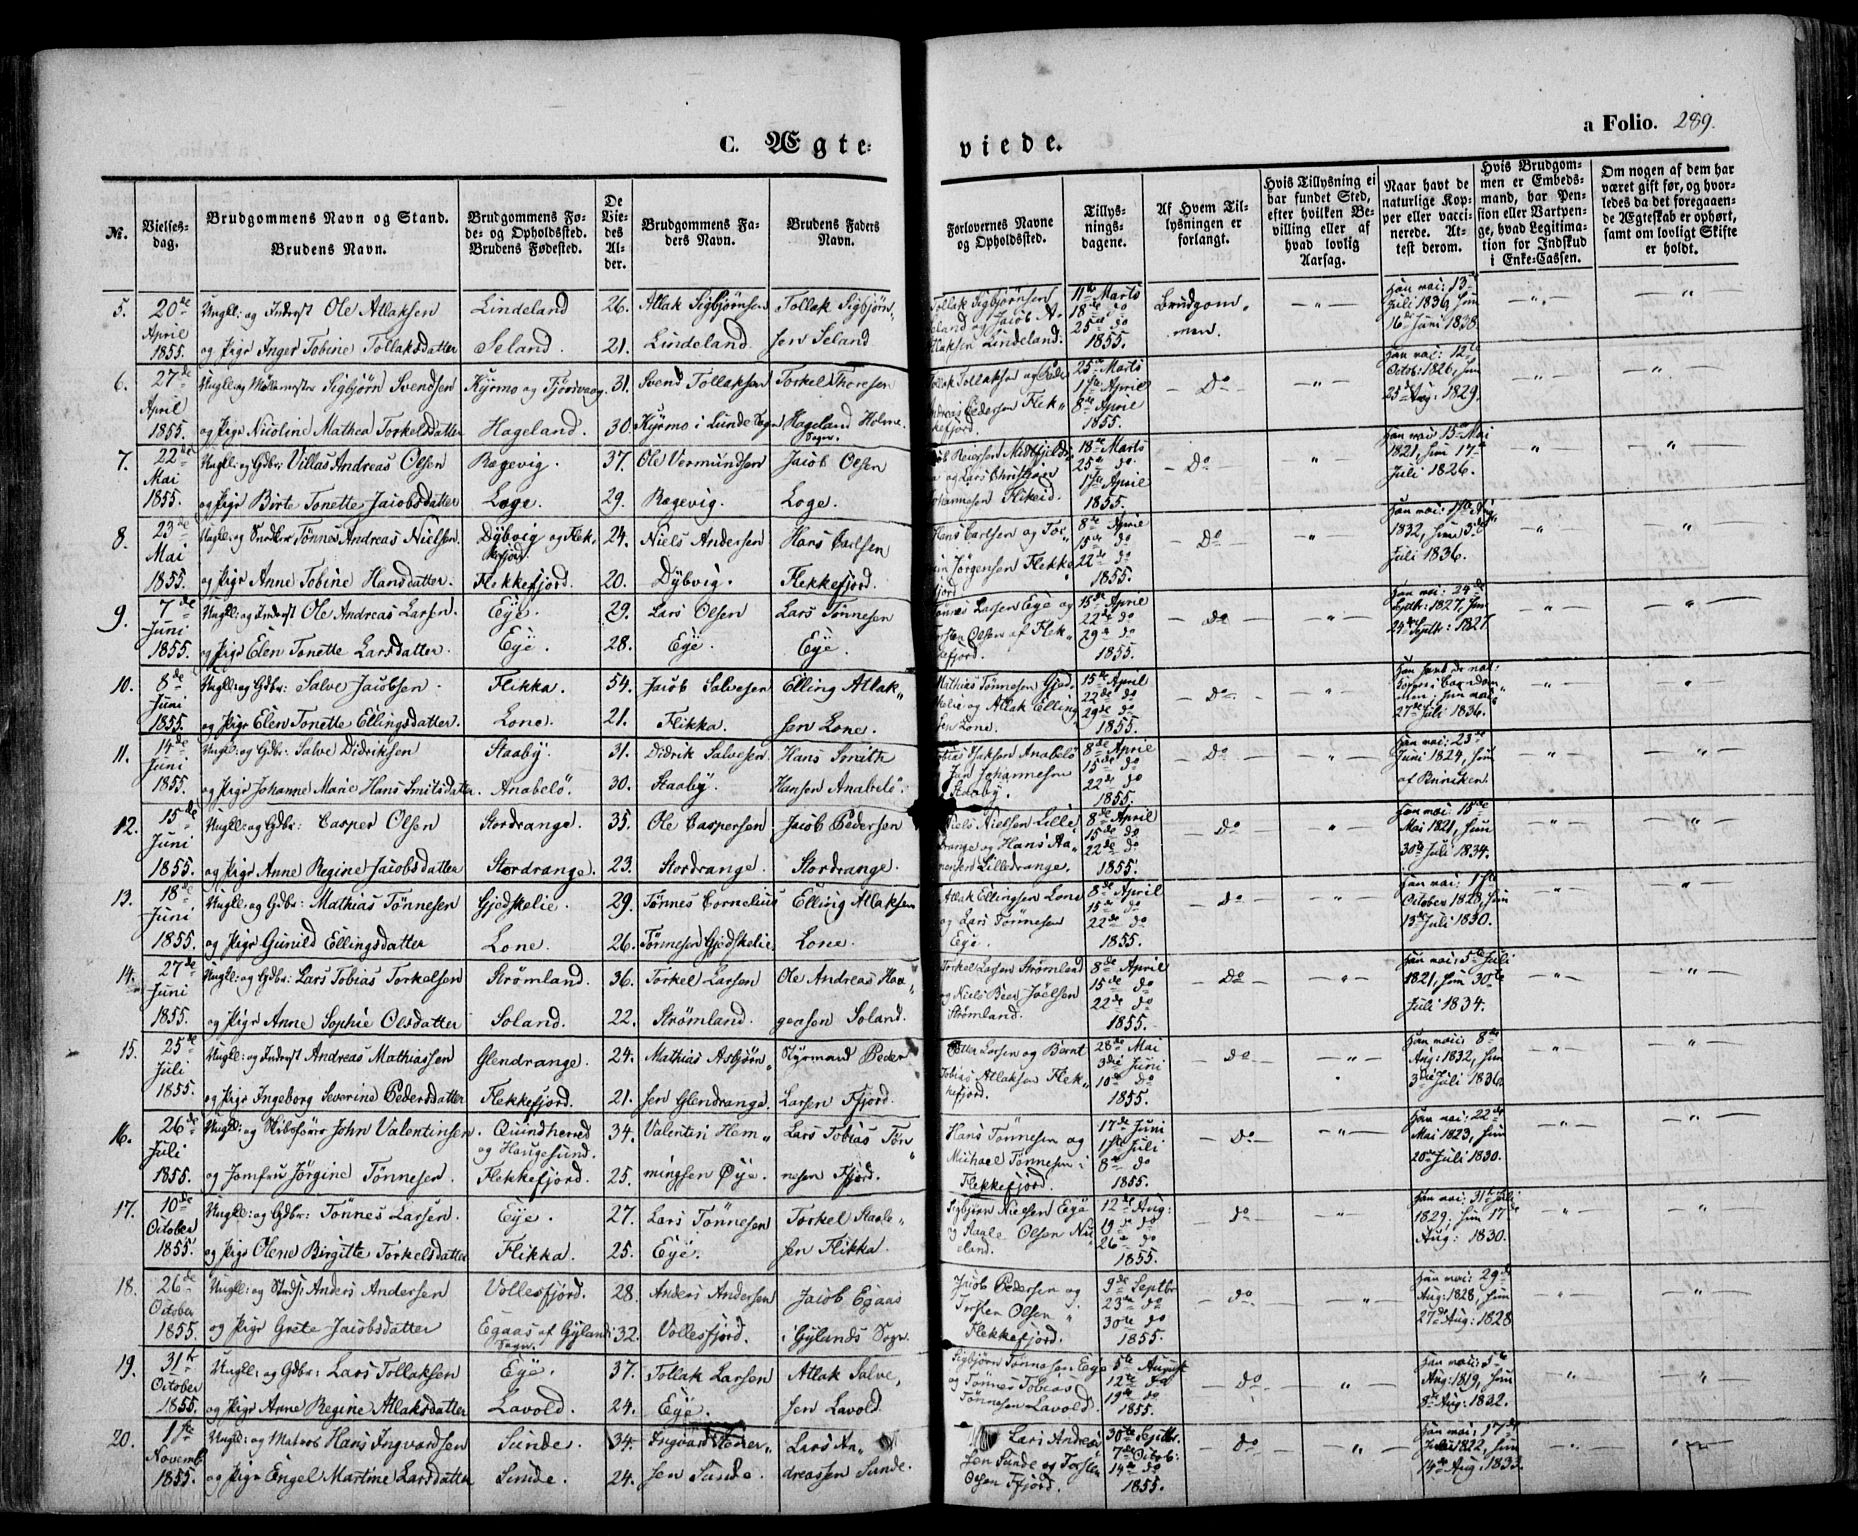 a Folio. 289.
C. Ægte=
viede.
No.
Vielses=
dag.
Brudgommens Navn og Stand.
Brudens Navn.
Brudgommens Fø=
de- og Opholdssted.
Brudens Fødested.
De
Vie=
des
Al=
der.
Brudgommens Fa=
ders Navn.
Brudens Faders
Navn.
Forlovernes Navne
og Opholdssted.
Tillys=
nings=
dagene.
Af Hvem Til=
lysningen er
forlangt.
Hvis Tillysning ei
har fundet Sted,
efter hvilken Be=
villing eller af
hvad lovlig
Aarsag.
Naar havt de
naturlige Kop=
per eller vacci=
nerede. At=
test derom.
Hvis Brudgom=
men er Embeds=
mand, har Pen=
sion eller Vartpen=
ge, hvad Legitima=
tion for Indskud
i Enke-Cassen.
Om nogen af dem har
været gift før, og hvor=
ledes da det foregaaen=
de Ægteskab er ophørt,
samt om lovligt Skifte
er holdt.
5. 20de April 1855. Ungkl: og Inderst Ole Atlaksen Lindeland 26. Atlak Sigbjørnsen Tollak Sigbjørn„ Tollak Sigbjørnsen 11te Marts Brudgom„ Han vai: 13de
og Pige Inger Tobine Tollaksdatter Seland. 21. Lindeland. sen Seland. Seland og Jacob A„ 18de do 25de do men. Juli 1836, hun
Atlaksen Lindeland. 1855. 16de Juni 1838.
6. 27de April 1855. Ungkl: og Møllemester Sigbjørn Svendsen Kyrmo og Tjørsvaag. 31. Svend Tollaksen Torkel Thoresen Tollak Tollaksen og 25de Marts Do Han vai: 12te
og Pige Nicoline Mathea Torkelsdatter Hageland. 30. Kyrmo i Lunde Sogn Hageland Holme Sogn. Andreas Pedersen Flek„ 1ste April Octob: 1826, hun
kefjord. 8de April 1855. 25de Aug: 1829.
7. 22de Mai 1855. Ungkl: og Gdbr: Villas Andreas Olsen Regevig. 37. Ole Vermundsen Jacob Olsen 18de Marts Do Han vai: 15de Mai
og Pige Birte Tonette Jacobsdatter Loge. 29. Regevig. Loge. og Lars Christian 25de do 1821, hun 17de
Johannesen Flikeid. 1ste April 1855. Juli 1826.
8. 23de Mai 1855. Ungkl: og Snedker Tønnes Andreas Nielsen. Dybvig og Flek„ kefjord. 24. Niels Andersen Hans Carlsen Hans Carlsen og 8de April Do Han vai: 1ste Aug
og Pige Anne Tobine Hansdatter. Flekkefjord. 20. Dybvig. Flekkefjord. Jørgensen Flekke„ 15de do 1832, hun 3de
fjord 22de do 1855. Juli 1836.
9. 7de Juni 1855. Ungkl: og Inderst Ole Andreas Larsen. Eye. 29. Lars Olsen Lars Tønnesen Tønnes Larsen Eye og 15de April Do Han vai: 24de
og Pige Elen Tonette Larsdatter. Eye. 28. Eye. Eye. Torsten Olsen af Flek„ 22de do Septb: 1827, hun
kefjord. 29de do 1855. 24de Septb: 1827
10. 8de Juni 1855. Ungkl: og Gdbr: Salve Jacobsen. Flikka. 54. Jacob Salvesen Elling Atlak„ Mathias Tønnesen Gjed„ 15de April Do Han havt de nat:
og Pige Elen Tonette Ellingsdatter. Lone. 21. Flikka. sen Lone. skelie og Atlak Elling„ 22de do Kopper i Barndom„
sen Lone. 29de do 1855. men, hun vai: 27de Juli 1836.
11. 14de Juni 1855. Ungkl: og Gdbr: Salve Didriksen Staaby. 31. Didrik Salvesen Hans Smith Tobias Isaksen Anabelø 8de April Do Han vai: 23de
og Pige Johanne Marie Hans Smitsdatter. Anabelö. 30. Staaby. Hansen Anabelö. Jan Johannesen 15de do Juni 1824, hun
Staaby. 22de do 1855. af Binniken.
12. 15de Juni 1855. Ungkl: og Gdbr: Casper Olsen Stordrange. 35. Ole Caspersen Jacob Pedersen Niels Nielsen Lille„ 8de April Do Han vai: 15de
og Pige Anne Regine Jacobsdatter Stordrange. 23. Stordrange. Stordrange. drange og Hans Aa„ 15de do Mai 1821, hun
monsen Lilledrange. 22de do 1855. 30te Juli 1834.
13. 18de Juni 1855. Ungkl: og Gdbr: Mathias Tønnesen Gjedskelie. 29. Tønnes Cornelius Elling Atlaksen Atlak Ellingsen Lone 8de April Do Han vai: 1ste
og Pige Gunild Ellingsdatter Lone. 26. Tønnesen Gjedskelie. Lone. og Lars Tønnesen 15de do October 1828, hun
Eye. 22de do 1855. 13de Juli 1830.
14. 27de Juni 1855. Ungkl: og Gdbr: Lars Tobias Torkelsen Strømland. 36. Torkel Larsen Ole Andreas Haa„ Torkel Larsen Strømland 8de April Do Han vai: 5te Juli
og Pige Anne Sophie Olsdatter Soland. 22. Strømland. gensen Soland. og Niels Beer Joelsen 15de do 1821, hun 30te
Strømland. 22de do 1855. Juli 1834.
15. 25de Juli 1855. Ungkl: og Inderst Andreas Mathiassen Glendrange. 24. Mathias Asbjørn„ Styrmand Peder Larsen og Bernt 28de Mai Do Han vai: 8de
og Pige Ingeborg Severine Pedersdatter Flekkefjord. 21. sen Glendrange. Larsen Fjord. Tobias Atlaksen Flek„ 3die Juni Aug: 1832, hun
kefjord. 10de do 1855. 3die Juli 1836.
16. 26de Juli 1855. Ungkl: og Skibsfører John Valentinsen. Quindherred og Haugesund. 34. Valentin Hem„ Lars Tobias Tøn„ Hans Tønnesen og 17de Juni Do Han vai: 22de
og Jomfru Jörgine Tønnesen. Flekkefjord. 25. mingsen Øye. nesen Fjord. Michael Tønnesen i 1ste Juli Mai 1823, hun
Flekkefjord. 8de do 1855. 20de Juli 1830.
17. 10de October 1855. Ungkl: og Gdbr: Tønnes Larsen. Eye. 27. Lars Tønnesen Torkel Staale„ Sigbjørn Nielsen Egø 12te Aug: Do Han vai: 31te Juli
og Pige Olene Birgitte Torkelsdatter Flikka. 25. Eye. sen Flikka. og Aale Olsen Nu„ 19de do 1829, hun 17de
eland. 26de do 1855. Aug: 1830.
18. 26de October 1855. Ungkl: og Anders Andersen Vollesfjord. 28. Anders Andersen Jacob Egaas Jacob Pedersen og 9de Septbr Do Han vai: 29de
og Pige Grete Jacobsdatter Egaas af Gylands Sogn. 32. Vollesfjord. i Gylands Sogn. Torsten Olsen 23de do Aug: 1828, hun
Flekkefjord. 30te do 1855. 27de Aug: 1828
19. 31te October 1855. Ungkl: og Gdbr: Lars Tollaksen Eye. 37. Tollak Larsen Atlak Salve„ Sigbjørn Tønnesen Eye 5te August Do Han vai: 5te
og Pige Anne Regine Atlaksdatter Lavold. 24. Eye. sen Lavold. og Tønnes Tobias 12te do Aug: 1819, hun
Tønnesen Lavold. 19de do 1855. 8de Aug: 1832.
20. 1ste Novemb 1855. Ungkl: og Matros Hans Ingvardsen Sunde. 34. Ingvard Lars An„ Lars Andrea„ 30te Septbr. Do Han vai: 17de
og Pige Engel Martine Larsdatter Sunde. 24. sen Sunde. dreassen Sunde. sen Sunde og Torsten 7de Octob: Juli 1822, hun
Olsen Fjord. 14de do 1855. 14de Aug: 1833.